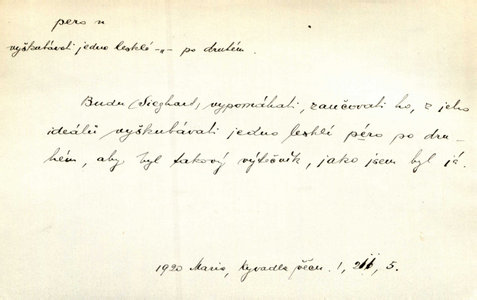 pero n
vyškubávati jedno lesklé -"- po druhém.
Budu (Sieghart) vypomáhati, zaučovati ho, z jeho
ideálů vyškubávati jedno lesklé péro po dru-
hém, aby byl takový výtečník, jako jsem byl já.
1920 Maria, Kyvadlo 1, 5.